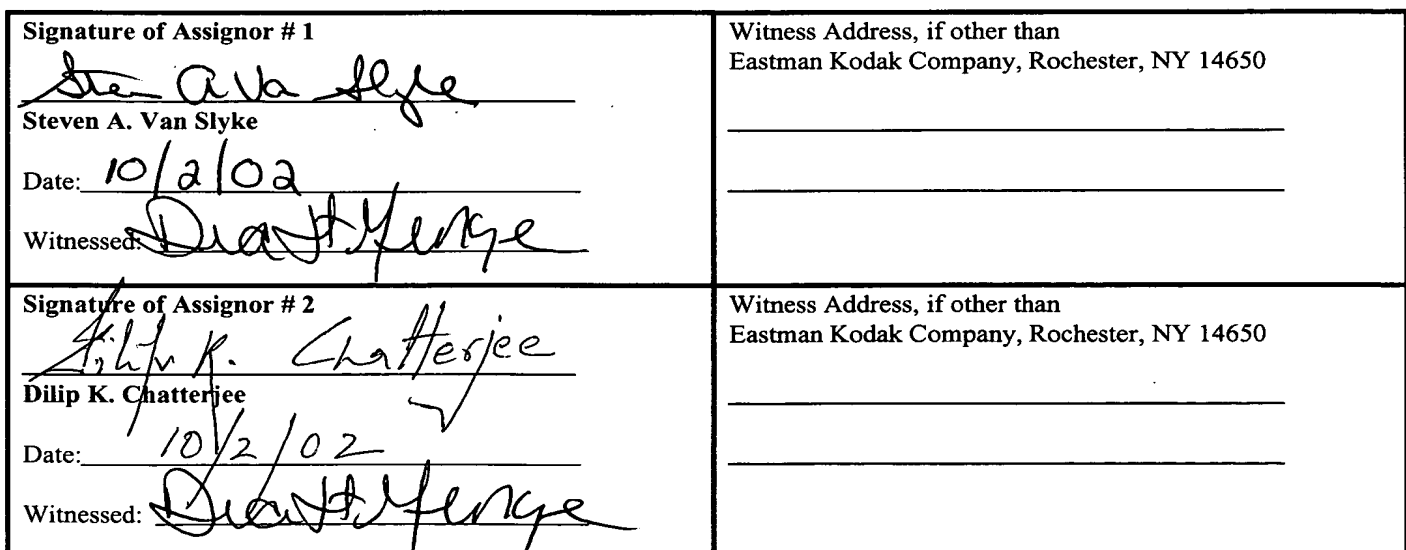 Signature of Assignor # 1
Steven A Van Slyke
Steven A. Van Slyke
Date: 10/2/02
Witnessed:
Witness Address, if other than
Eastman Kodak Company, Rochester, NY 14650
Signature of Assignor # 2
Dilip K. Chatterjee
Dilip K. Chatterjee
Date: 10/2/02
Witnessed:
Witness Address, if other than
Eastman Kodak Company, Rochester, NY 14650